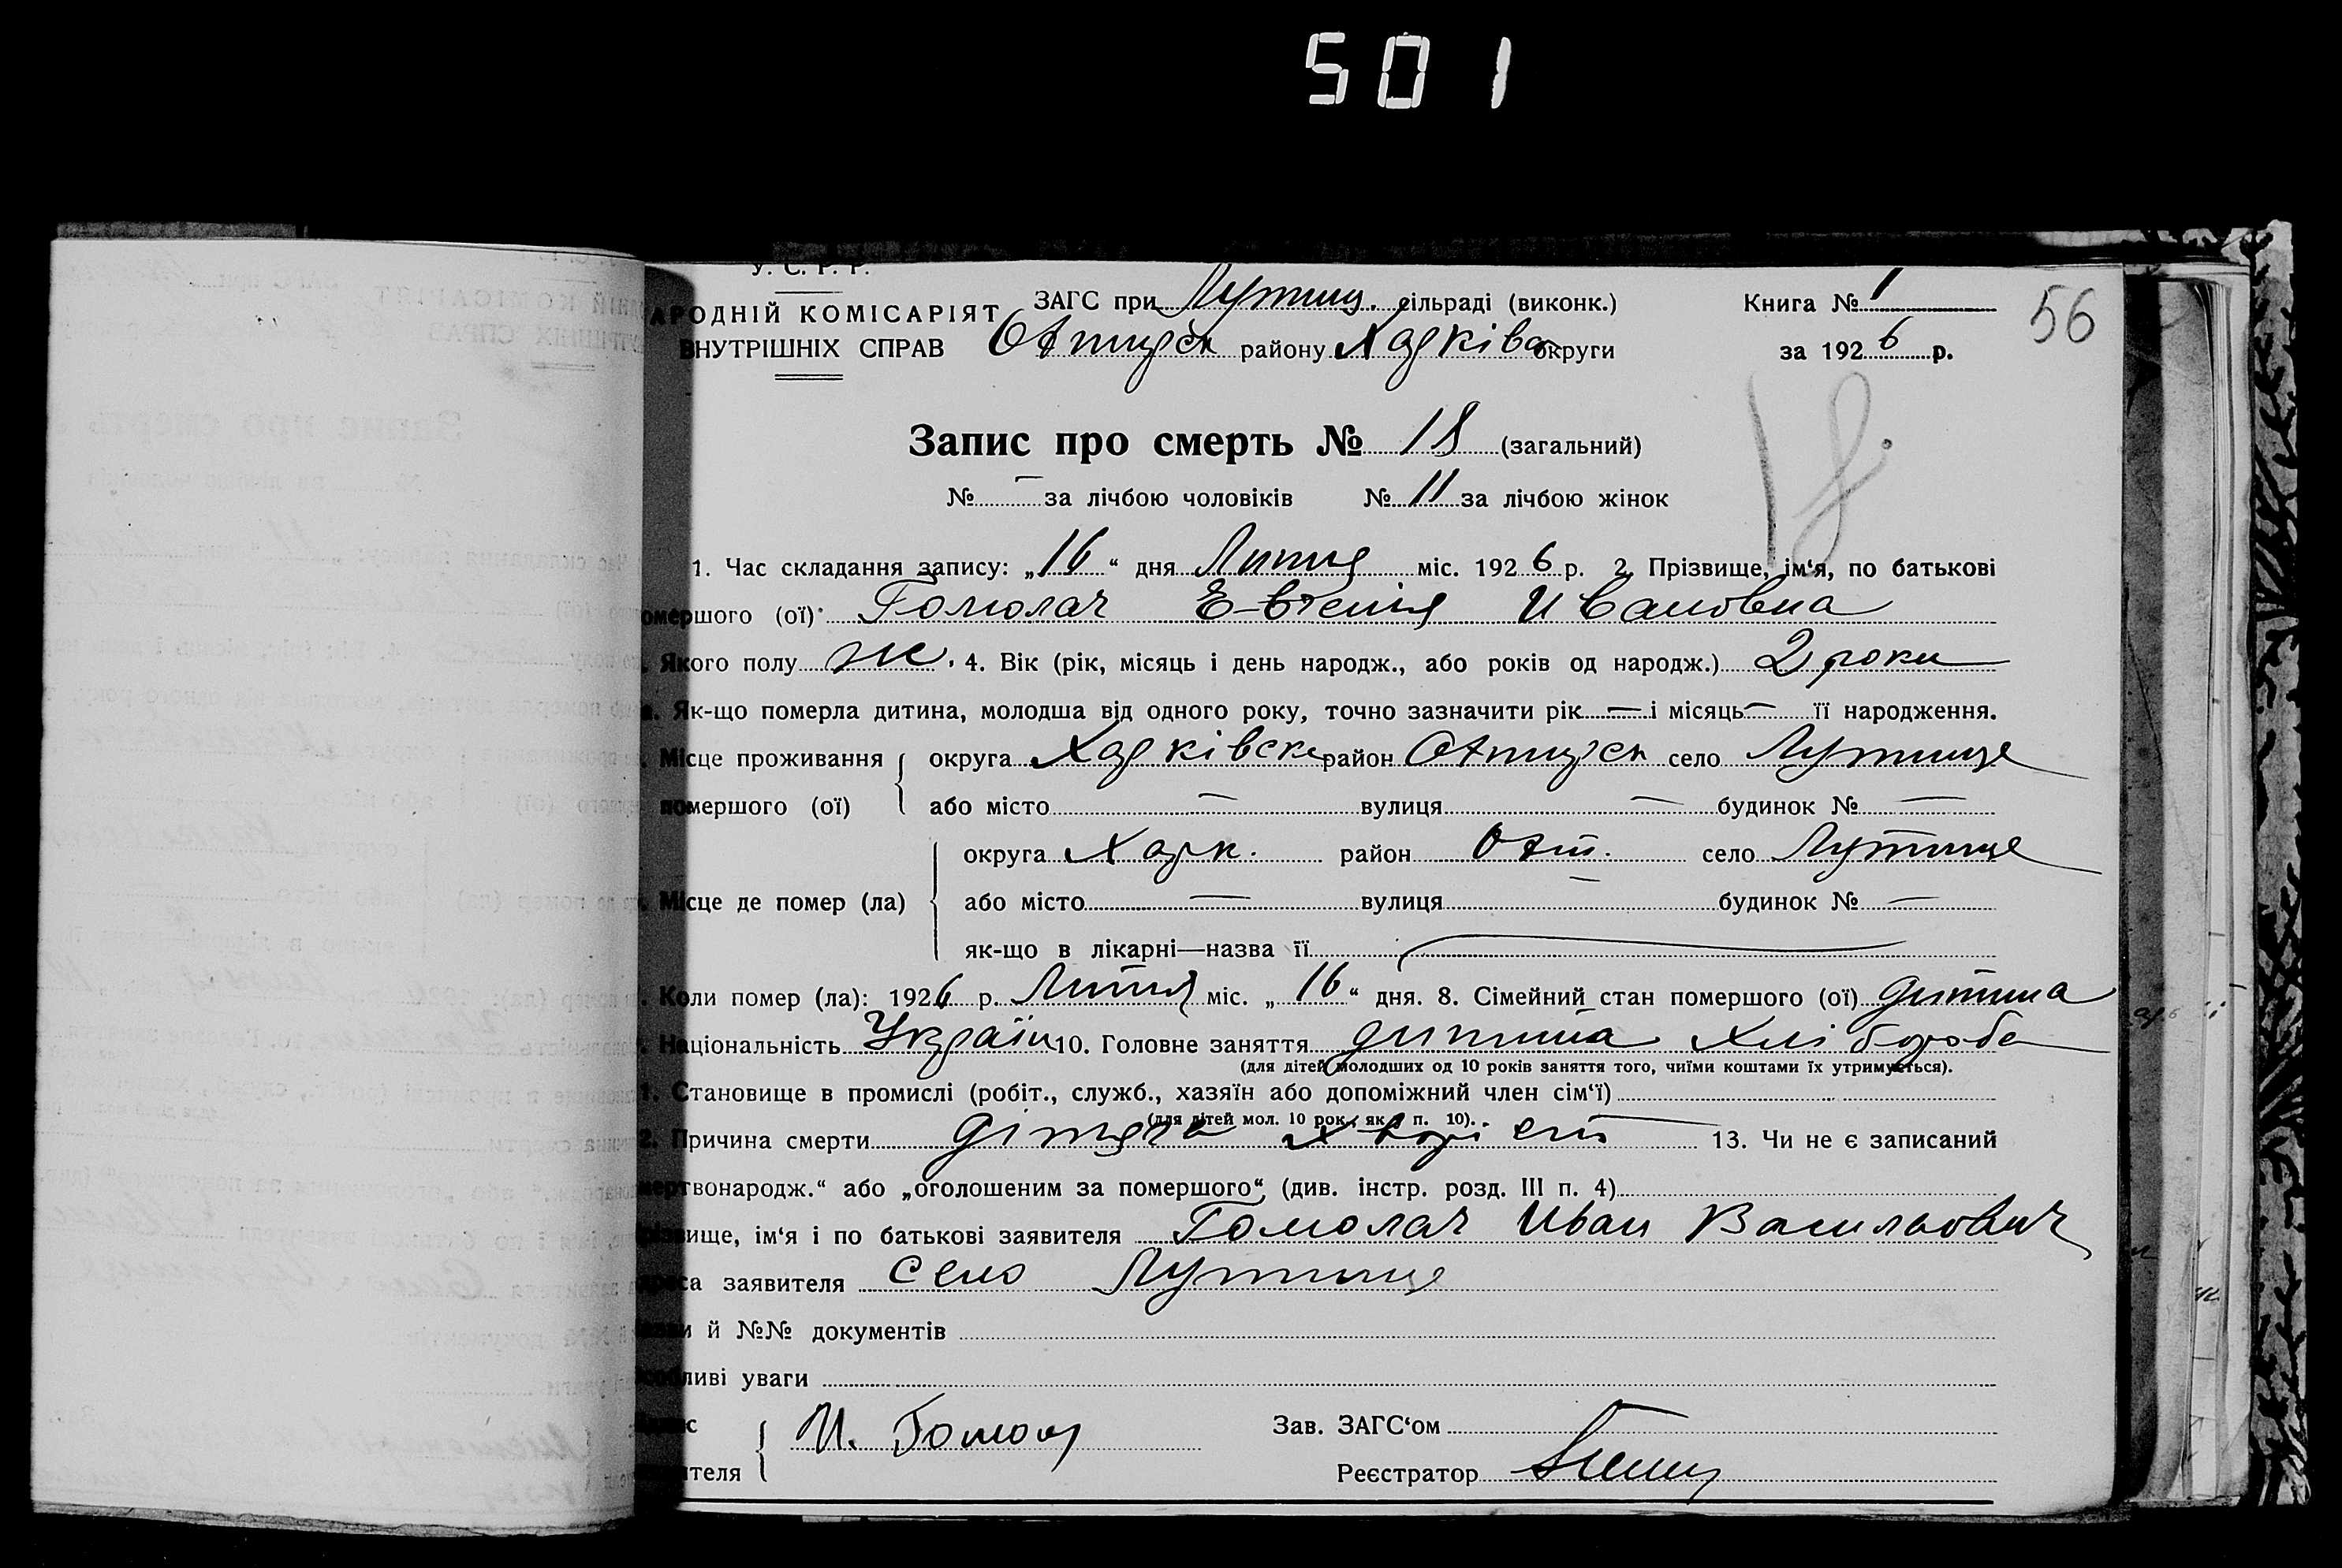 501
У. С. Р. Р.
АРОДНІЙ КОМІСАРІЯТ ЗАГС при Лутищ. сільраді (виконк.) Книга № 1 56
ВНУТРІШНІХ СПРАВ Охтирськ району Харківск округи за 1926 р.
Запис про смерть № 18 (загальний) 18.
№ — за лічбою чоловіків № 11 за лічбою жінок
1. Час складання запису: „16“ дня Липня міс. 1926 р. 2. Прізвище, ім‘я, по батькові
омершого (ої) Гомолач Евгения Ивановна
Якого полу ж. 4. Вік (рік, місяць і день народж., або років од народж.) 2 роки
Як-що померла дитина, молодша від одного року, точно зазначити рік — і місяць — її народження.
Місце проживання округа Харківске район Охтирск село Лутище
помершого (ої) або місто — вулиця — будинок № —
округа Харк. район Охт. село Лутище
Місце де помер (ла) або місто — вулиця — будинок № —
як-що в лікарні—назва її
Коли помер (ла): 1926 р. Липня міс. „16“ дня. 8. Сімейний стан помершого (ої) дитина
Національність Україн 10. Головне заняття дитина Хліборoба
(для дітей молодших од 10 років заняття того, чиїми коштами їх утримується).
Становище в промислі (робіт., служб., хазяїн або допоміжний член сім‘ї)
(для дітей мол. 10 рок., як п. 10).
2. Причина смерти дітяча 13. Чи не є записаний
мертвонародж.“ або „оголошеним за помершого“ (див. інстр. розд. III п. 4)
вище, ім‘я і по батькові заявителя Гомолач Иван Васильович
са заявителя село Лутище
й №№ документів
ливі уваги
с И. Гомол Зав. ЗАГС‘ом
теля Реєстратор